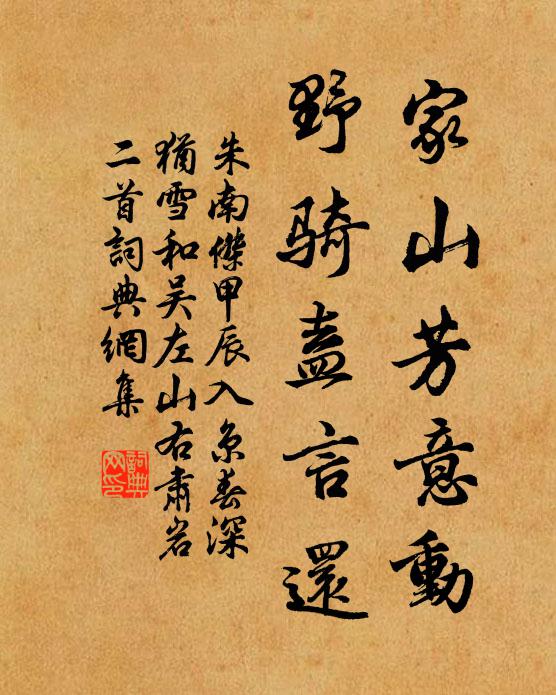 家山芳意動
野騎盍言還
朱南傑甲辰入京春深
猶雪和吴左山右肅岩
二首詞典網集
詞典
网印